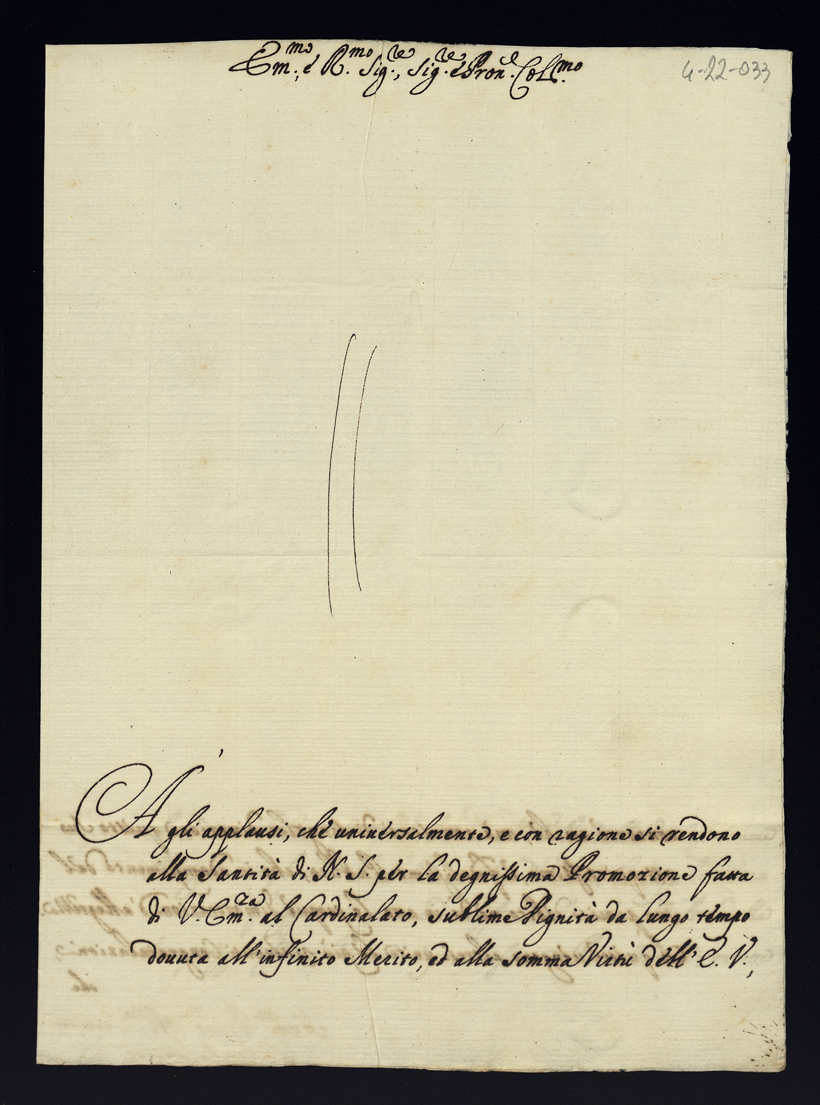 Em.mo é R.mo Sig.re, Sig.re é Pron.e Coll.mo
4-22-033
A gli applausi, ché universalmente, e con ragione si rendono
alla Santità di N. S. pér la degnissima Promozione fatta
di V. Em.za al Cardinalato, sublime Dignità da lungo témpo
douuta all'infinito Merito, ed alla somma Virtù déll'E. V.,